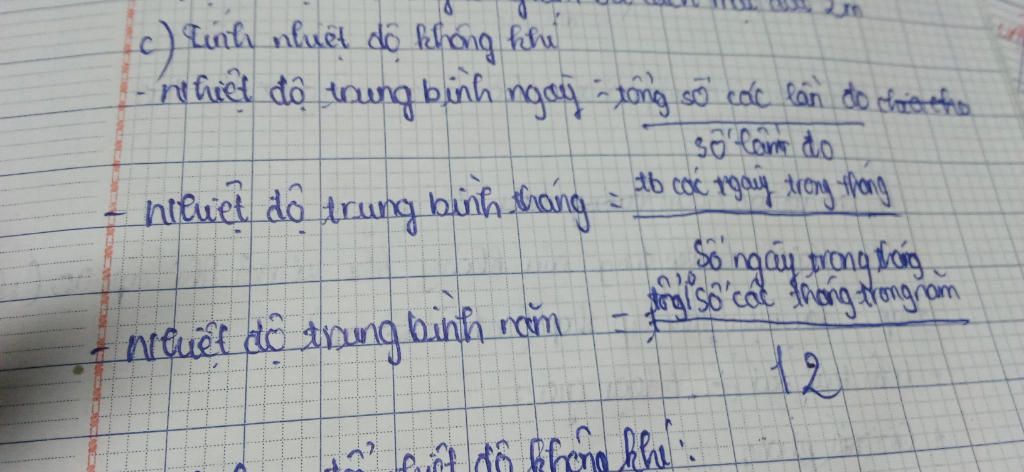 2m
c) tính nhiệt độ không khí
- nhiệt độ trung bình ngày = tổng số các lần đo
số lần đo
- nhiệt độ trung bình tháng = tb các ngày trong tháng
số ngày trong tháng
- nhiệt độ trung bình năm = tổng số các tháng trong năm
12
độ không khí: